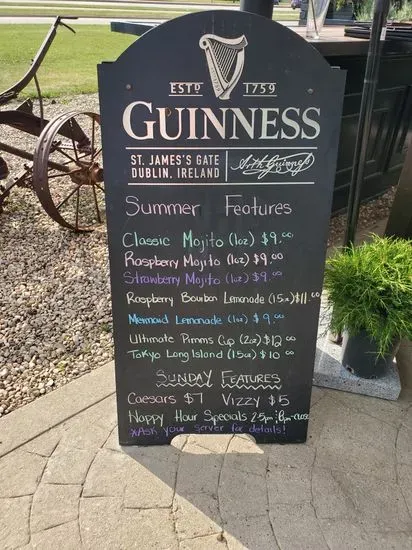 ESTD 1759
GUINNESS
ST. JAMES'S GATE
DUBLIN, IRELAND
Arth Guinness
Summer Features
Classic Mojito (1oz) $9.00
Raspberry Mojito (1oz) $9.00
Strawberry Mojito (1oz) $9.00
Raspberry Bourbon Lemonade (1.5oz) $11.00
Mermaid Lemonade (1oz) $9.00
Ultimate Pimms Cup (2oz) $12.00
Tokyo Long Island (1.5oz) $10.00
SUNDAY FEATURES
Caesars $7 Vizzy $5
Happy Hour Specials 2-5pm
*Ask your server for details!